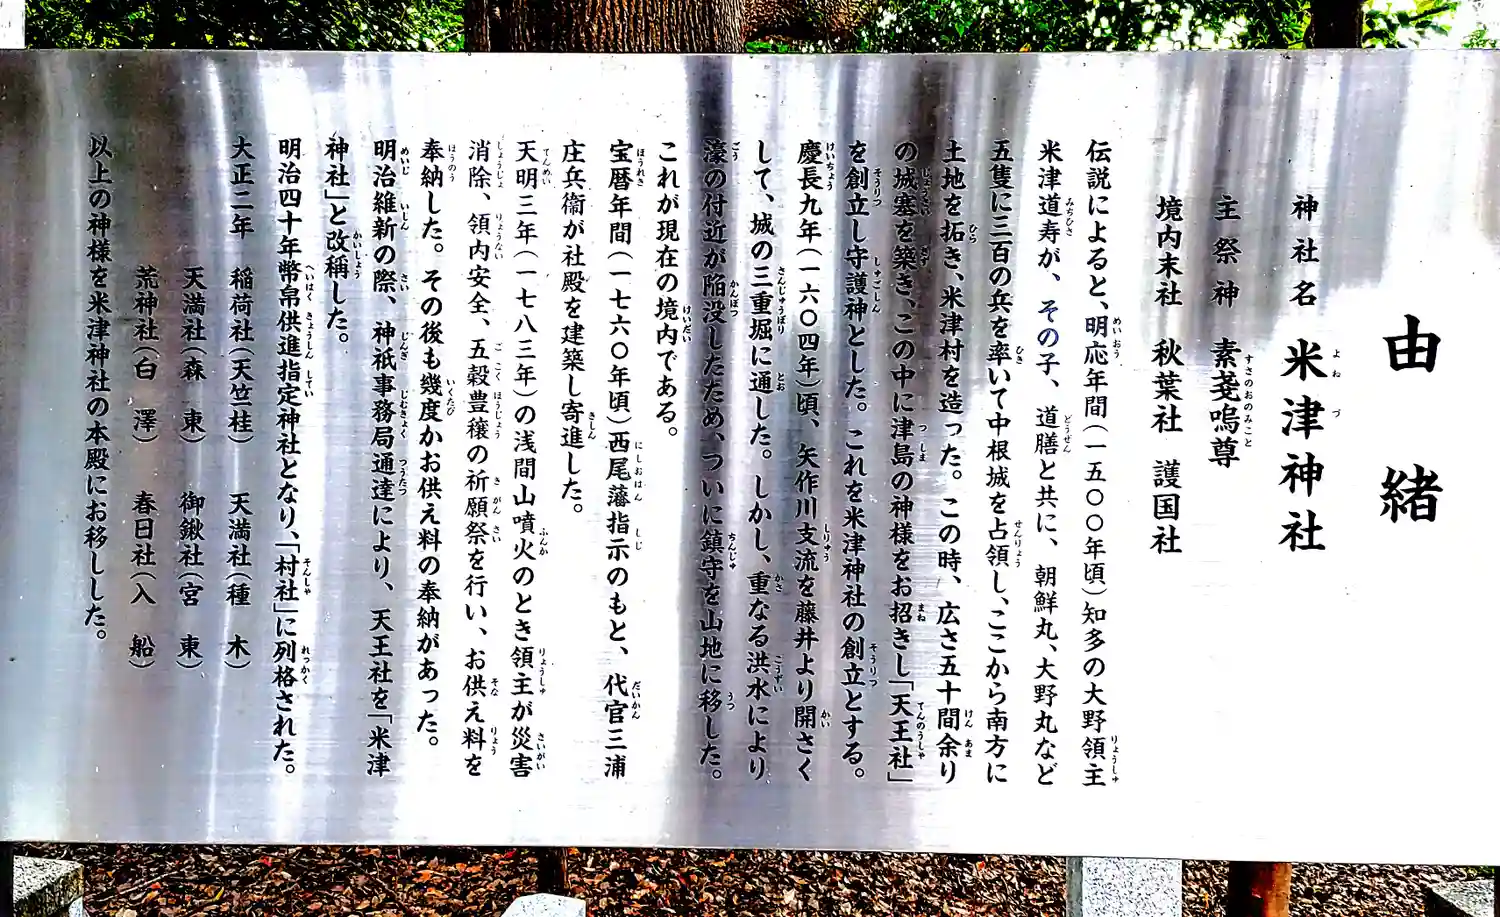 由緒
神社名 米津神社
主祭神 素戔嗚尊
境内末社 秋葉社 護国社
伝説によると、明応年間(一五〇〇年頃)知多の大野領主
米津道寿が、その子、道膳と共に、朝鮮丸、大野丸など
五隻に三百の兵を率いて中根城を占領し、ここから南方に
土地を拓き、米津村を造った。この時、広さ五十間余り
の城塞を築き、この中に津島の神様をお招きし「天王社」
を創立し守護神とした。これを米津神社の創立とする。
慶長九年(一六〇四年)頃、矢作川支流を藤井より開さく
して、城の三重堀に通した。しかし、重なる洪水により
濠の付近が陥没したため、ついに鎮守を山地に移した。
これが現在の境内である。
宝暦年間(一七六〇年頃)西尾藩指示のもと、代官三浦
庄兵衞が社殿を建築し寄進した。
天明三年(一七八三年)の浅間山噴火のとき領主が災害
消除、領内安全、五穀豊穣の祈願祭を行い、お供え料を
奉納した。その後も幾度かお供え料の奉納があった。
明治維新の際、神祇事務局通達により、天王社を「米津
神社」と改稱した。
明治四十年幣帛供進指定神社となり、「村社」に列格された。
大正二年 稲荷社(天竺桂) 天満社(種木)
天満社(森東) 御鍬社(宮東)
荒神社(白澤) 春日社(入船)
以上の神様を米津神社の本殿にお移しした。